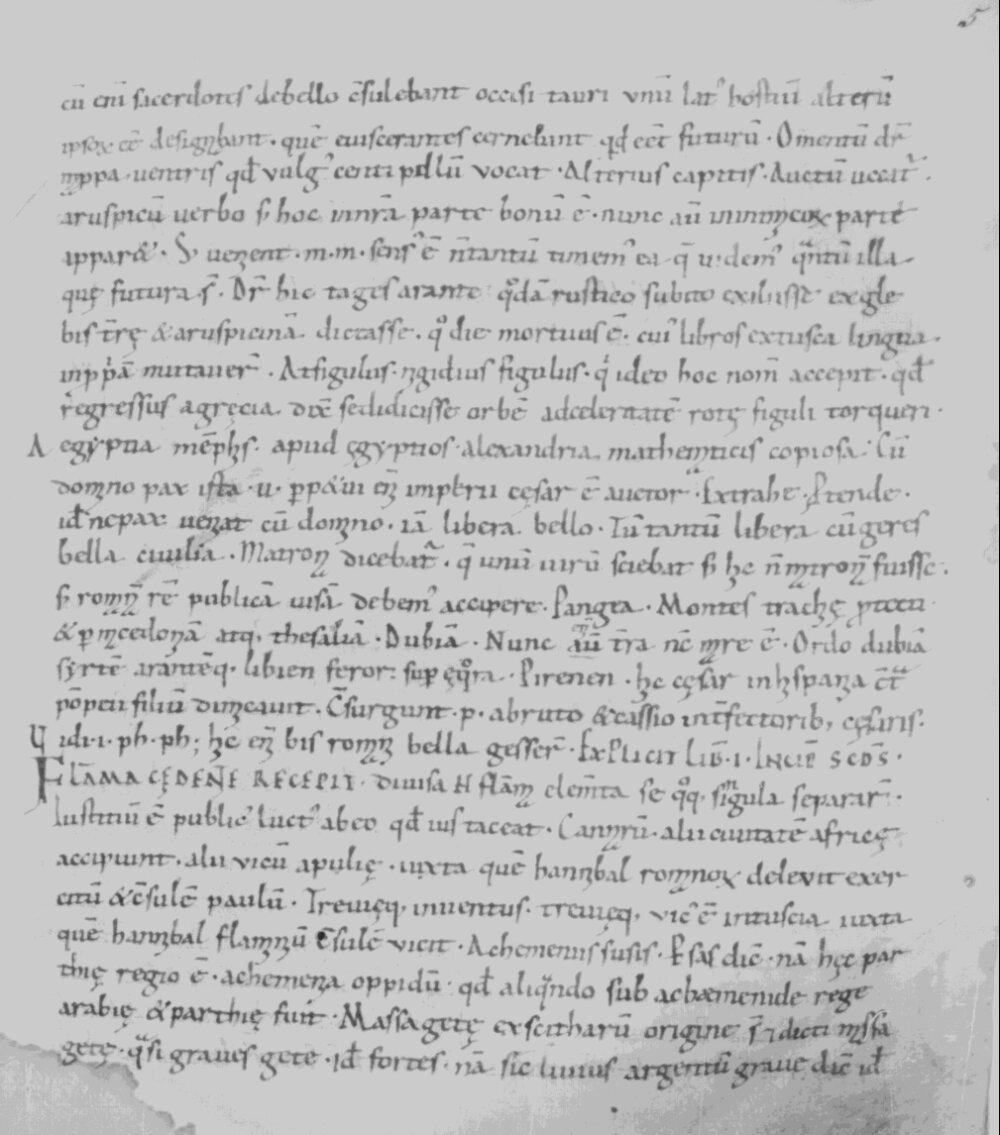 5
cū enī sacerdotes debello c̄sulebant occisi tauri unū lat' hostiū alterū
ipsoꝝ eē designabant · quē euiscerantes cernebant qđ eēt futurū · Omentū dr̄
mappa · uentris qđ vulg' centipellū vocat · Alterius capitis · Auctū uocat̄ ·
aruspicū uerbo s̄ hoc innr̄a parte bonū ē · nunc aū inimicoꝝ parte
appar& · S; uenient · m · m · sens' ē n̄tantū timem' ea · q̄ uidem' q̄ntū illa
quę futura s̄ · Dr̄ hic tages arante qͦdā rustico subito exilusse exgle
bis t̄rę & aruspicinā dictasse · qͦ die mortuus ē · cui' libros extusca lingua ·
inpp̄ā mutauer̄ · Atfigulus · nigidius figulus · qͥ ideo hoc nom̄ accepit · qđ
regressus agręcia dix̄ sedidicisse orbē adceleritatē rotę figuli torqueri ·
Aegyptia mēphis · apud ęgyptios · alexandria mathematicis copiosa · Cū
domino pax ista · u · pp&ui eni imperii cęsar ē auctor · Extrahe · Ptende ·
id'nepax ueniat cū domino · iā libera bello · Tū tantū libera cū geres
bella ciuilia · Matrona dicebat̄ · q̄ unū uirū sciebat s̄ hęc n̄ matronā fuisse ·
s̄ romanā rē publicā uisā debem' accipere · Pangea · Montes trachę
& p macedoniā atq, thesaliā · Dubiā · Nunc aū t̄ra nc̄ mare ē · Ordo dubiā
syrtē arentēq · libien feror : sup ęqͦra · Pirenen · hęc cęsar inhispania c̄t
pōpeii filiū dimicauit · C̄surgunt · p · abruto & cassio int̄fectorib, cęsaris ·
Uidi · i · ph · ph ; hęc eni bis romani bella gesser̄ · EXPLICIT LIB · I · INCIP SCDS ·
FLĀMA CĘDENE RECEPIT · diuisa n̄ flāma elem̄ta se qͦq, singula separar̄ ·
Iustitiū ē public' luct' abeo qđ ius taceat · Cannarū · alii ciuitatē africę
accipiunt · alii vicū apulię · iuxta quē hannibal romanoꝝ delevit exer
citū & c̄sulē paulū · Trevięq, inventus · trevięq, vic' ē intuscia iuxta
quē hannibal flaminiū c̄sulē vicit · Achemeniis susis · Psas dic̄ · nā hęc par
thię regio ē · achemenia oppidū · qđ aliq̄ndo sub achæmenide rege
arabię & parthię fuit · Massagetę exscitharū origine s̄ & dicti massa
getę · q̄si graves gete · id' fortes · nā sic liuius argentū grave dic̄ id'